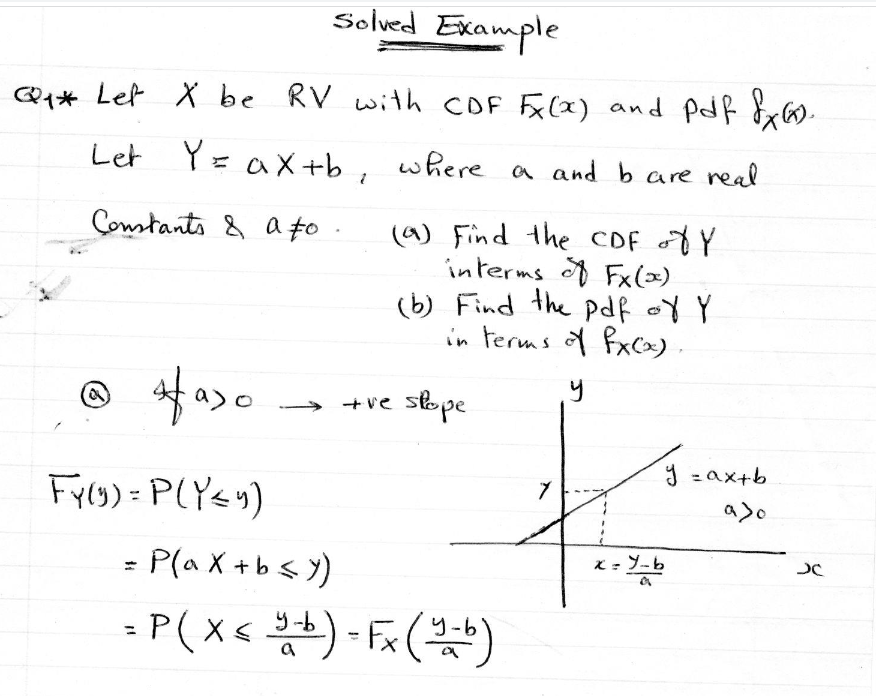 Solved Example
Q1* Let X be RV with CDF Fx(x) and pdf fx(x).
Let Y = aX+b, where a and b are real
Constants & a ≠ 0. (a) Find the CDF of Y
interms of Fx(x)
(b) Find the pdf of Y
in terms of fx(x).
ⓐ If a>0 → +ve slope
y
Fy(y) = P(Y≤y)
y = ax+b
a>0
y
= P(aX+b ≤ y)
x = y-b/a
x
= P(X ≤ y-b/a) = Fx(y-b/a)